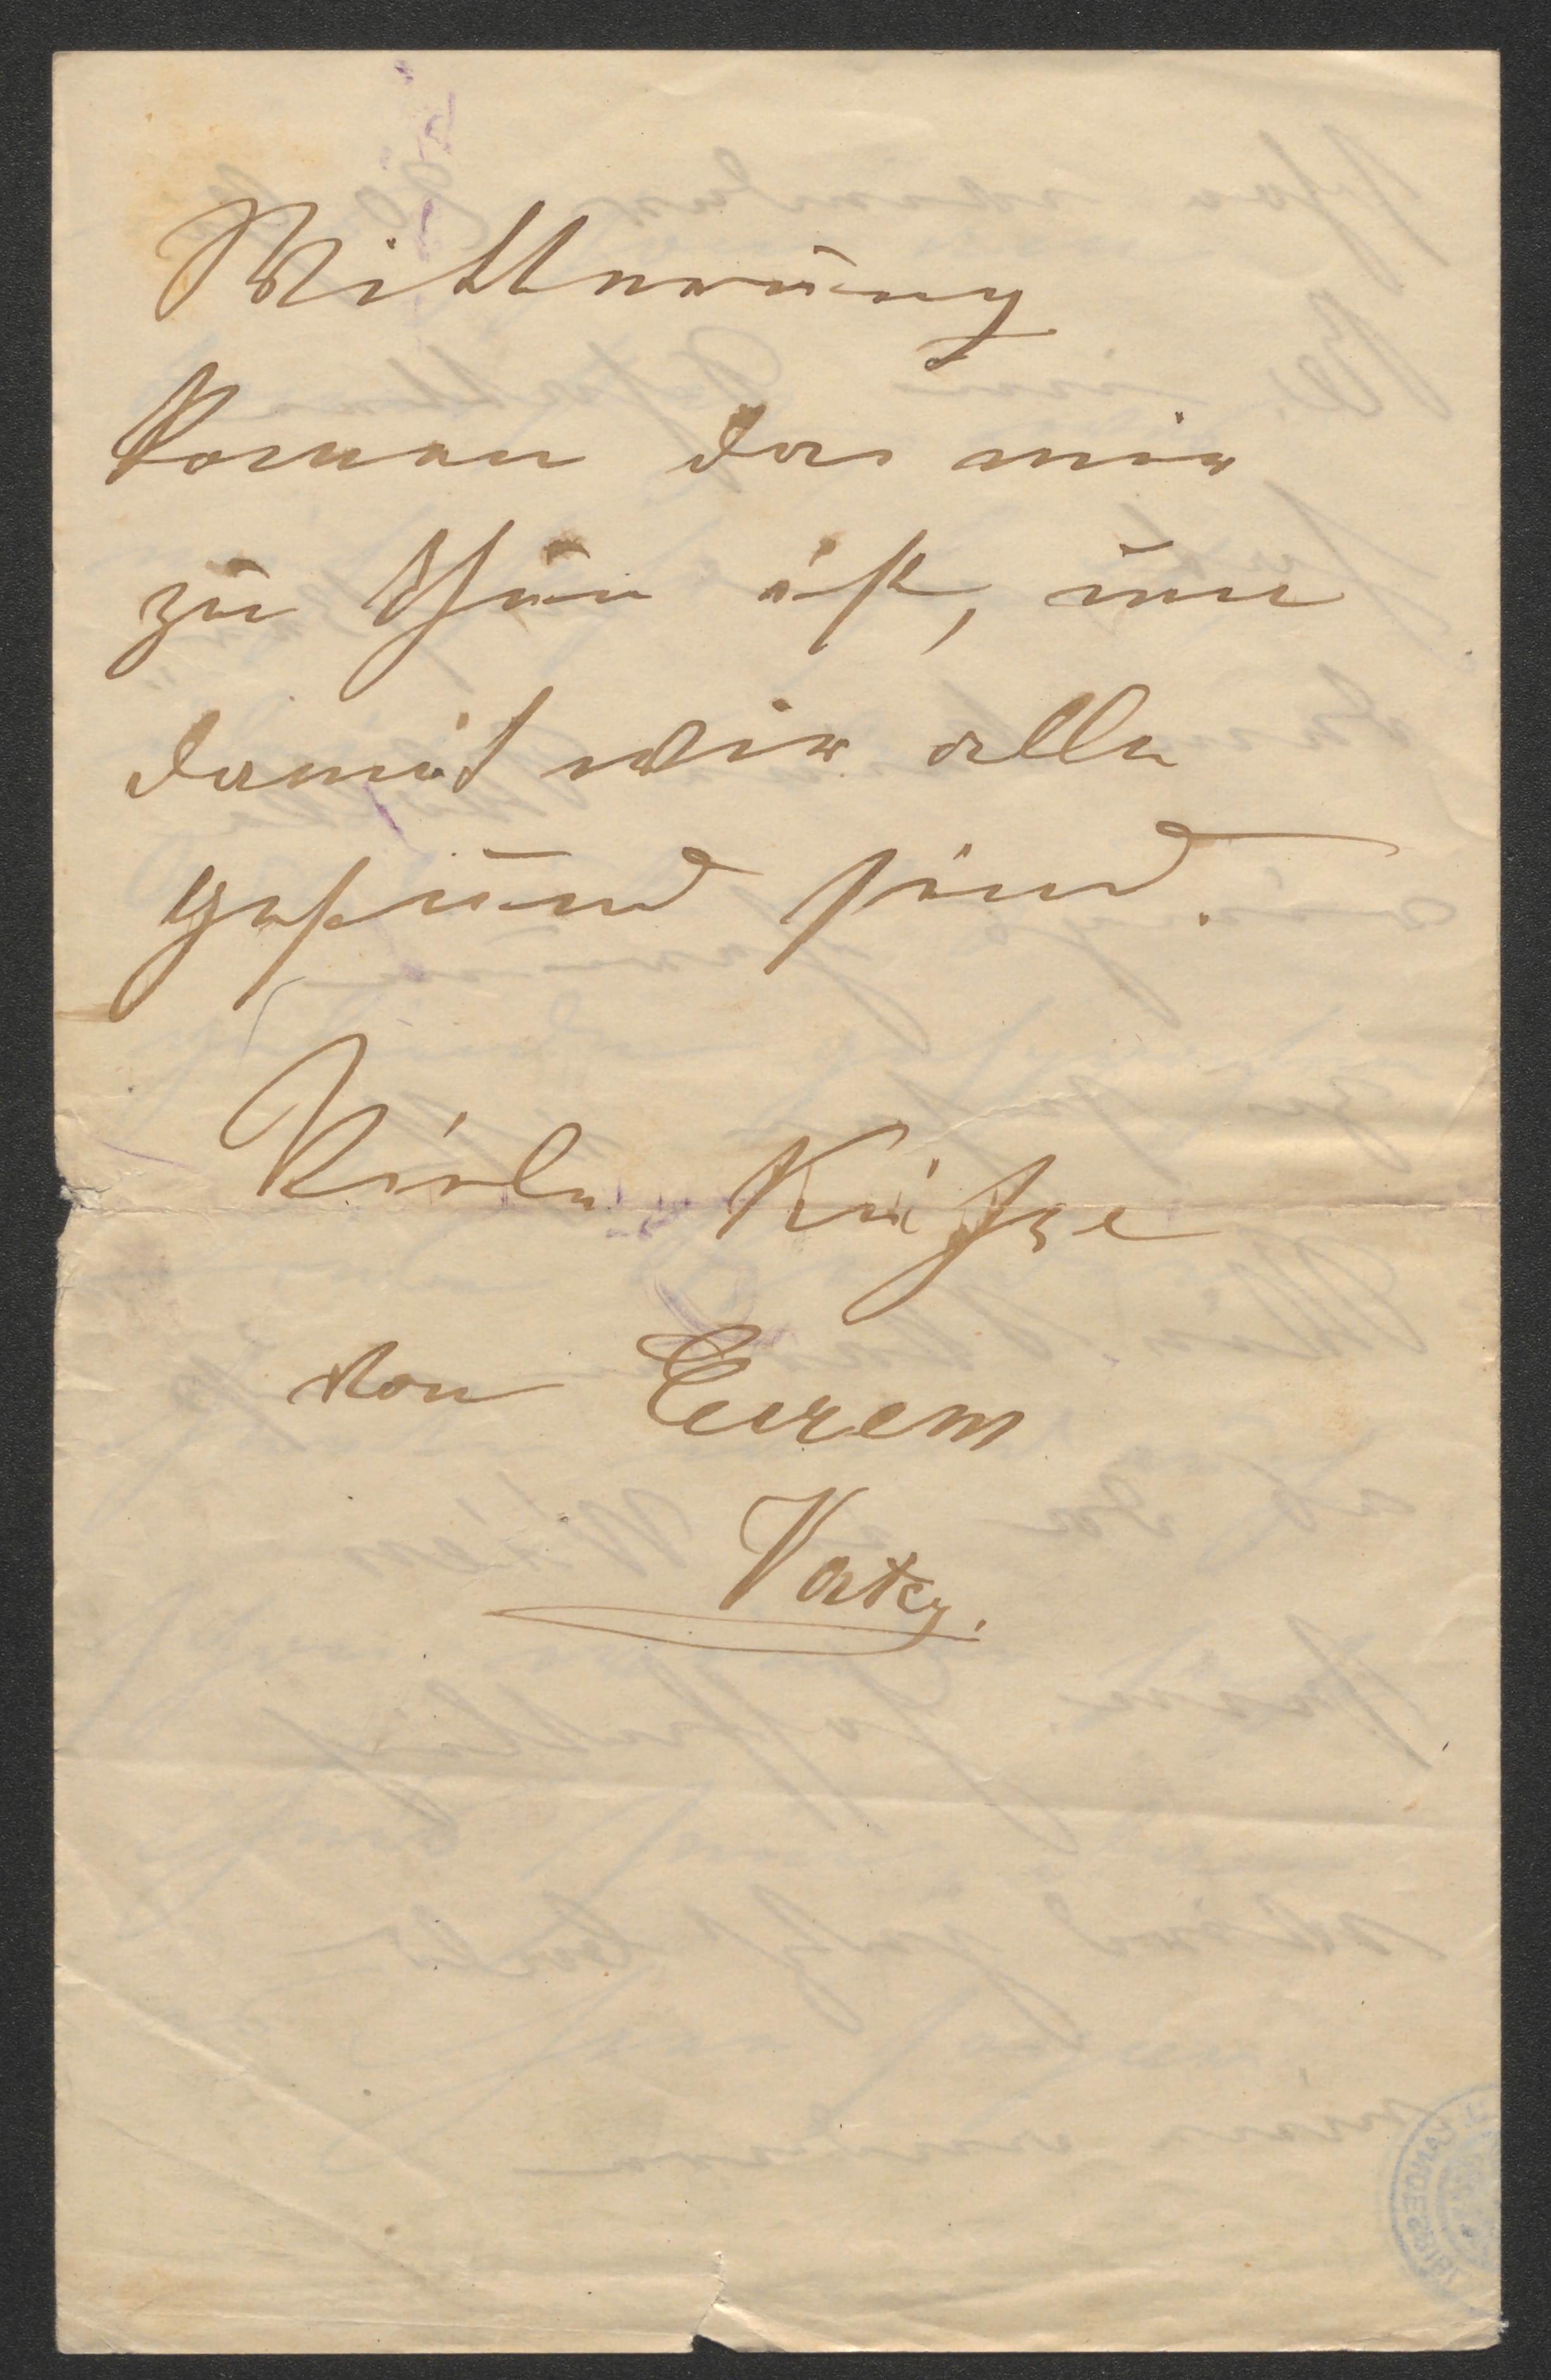 Witterung
kommen das mir
zu thun ist, um
damit wir alle
gesund sind.
Viele Küsse
von Eurem
Vater.